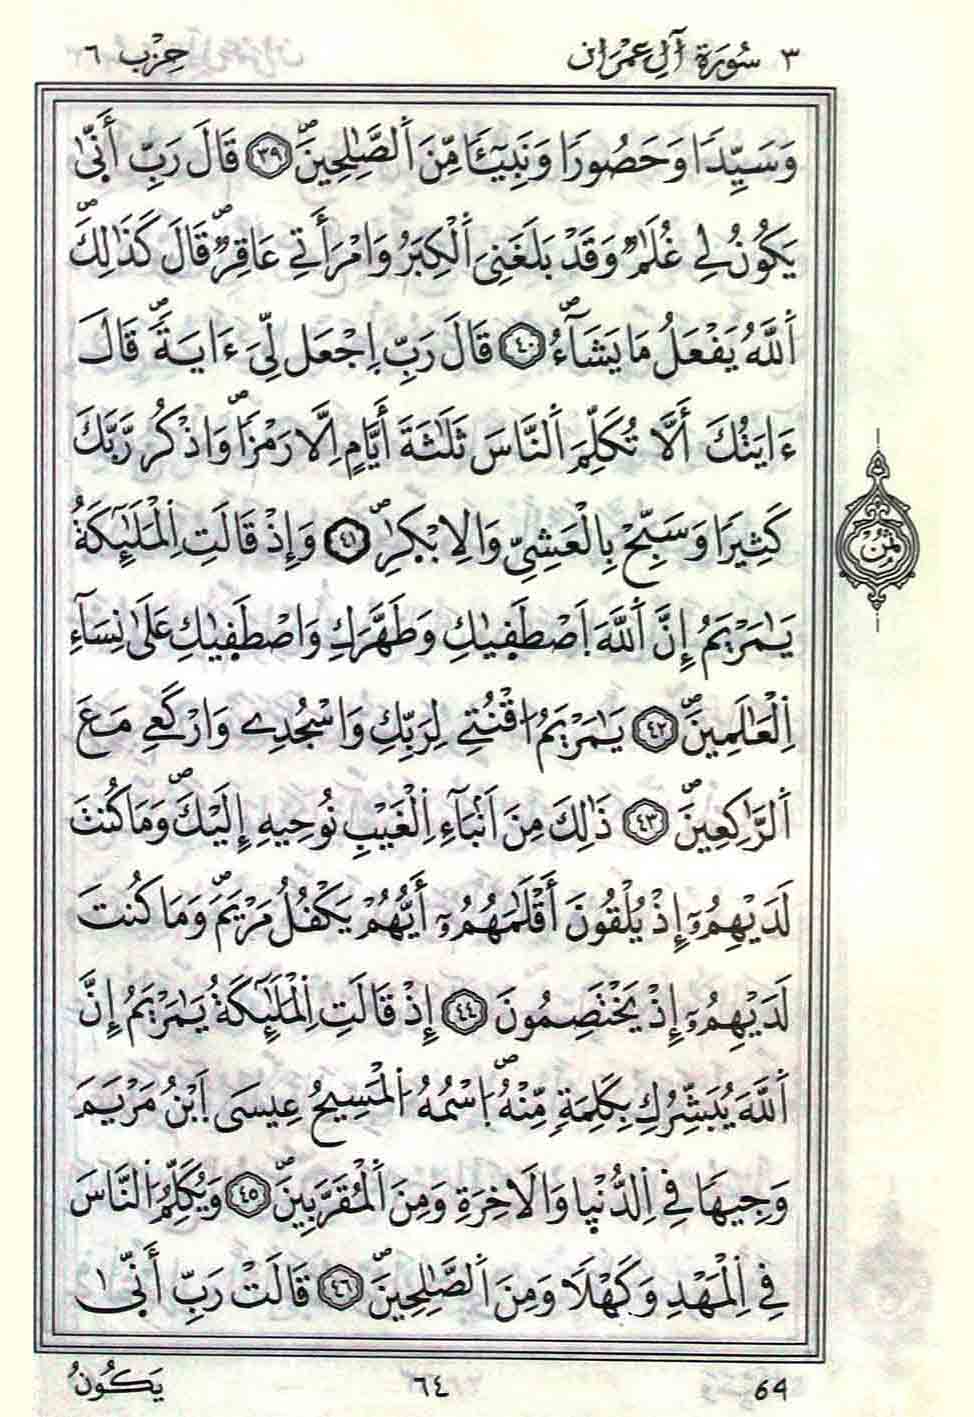 ٣ سُورَةُ آلِ عِمْرَان حِزْب ٦
وَسَيِّدٗا وَحَصُورٗا وَنَبِيٓـٔٗا مِّنَ اَ۬لصَّٰلِحِينَۖ ٣٩ قَالَ رَبِّ أَنّ۪يٰ
يَكُونُ لِے غُلَٰمٞ وَقَدْ بَلَغَنِيَ اَ۬لْكِبَرُ وَامْرَأَتِے عَاقِرٞۖ قَالَ كَذَٰلِكَۖ
اَ۬للَّهُ يَفْعَلُ مَا يَشَآءُۖ ٤٠ قَالَ رَبِّ اِ۪جْعَل لِّيَ ءَايَةٗۖ قَالَ
ءَايَتُكَ أَلَّا تُكَلِّمَ اَ۬لنَّاسَ ثَلَٰثَةَ أَيَّامٍ اِلَّا رَمْزٗاۖ وَاذْكُر رَّبَّكَ
كَثِيرٗا وَسَبِّحْ بِالْعَشِيِّ وَالِابْكٰ۪رِۖ ٤١ وَإِذْ قَالَتِ اِ۬لْمَلَٰٓئِكَةُ
يَٰمَرْيَمُ إِنَّ اَ۬للَّهَ اَ۪صْطَف۪يٰكِ وَطَهَّرَكِ وَاصْطَف۪يٰكِ عَلَيٰ نِسَآءِ
اِ۬لْعَٰلَمِينَۖ ٤٢ يَٰمَرْيَمُ اُ۟قْنُتِے لِرَبِّكِ وَاسْجُدِے وَارْكَعِے مَعَ
اَ۬لرَّٰكِعِينَۖ ٤٣ ذَٰلِكَ مِنَ اَنۢبَآءِ اِ۬لْغَيْبِ نُوحِيهِ إِلَيْكَۖ وَمَا كُنتَ
لَدَيْهِمُۥٓ إِذْ يُلْقُونَ أَقْلَٰمَهُمُۥٓ أَيُّهُمْ يَكْفُلُ مَرْيَمَۖ وَمَا كُنتَ
لَدَيْهِمُۥٓ إِذْ يَخْتَصِمُونَ ٤٤ إِذْ قَالَتِ اِ۬لْمَلَٰٓئِكَةُ يَٰمَرْيَمُ إِنَّ
اَ۬للَّهَ يُبَشِّرُكِ بِكَلِمَةٖ مِّنْهُۖ اُ۪سْمُهُ اُ۬لْمَسِيحُ عِيسَى اَ۪بْنُ مَرْيَمَ
وَجِيهٗا فِے اِ۬لدُّنْي۪ا وَالَاخِرَةِ وَمِنَ اَ۬لْمُقَرَّبِينَۖ ٤٥ وَيُكَلِّمُ اُ۬لنَّاسَ
فِے اِ۬لْمَهْدِ وَكَهْلٗا وَمِنَ اَ۬لصَّٰلِحِينَۖ ٤٦ قَالَتْ رَبِّ أَنّ۪يٰ
ثُمُن
يَكُونُ ٦٤ 64